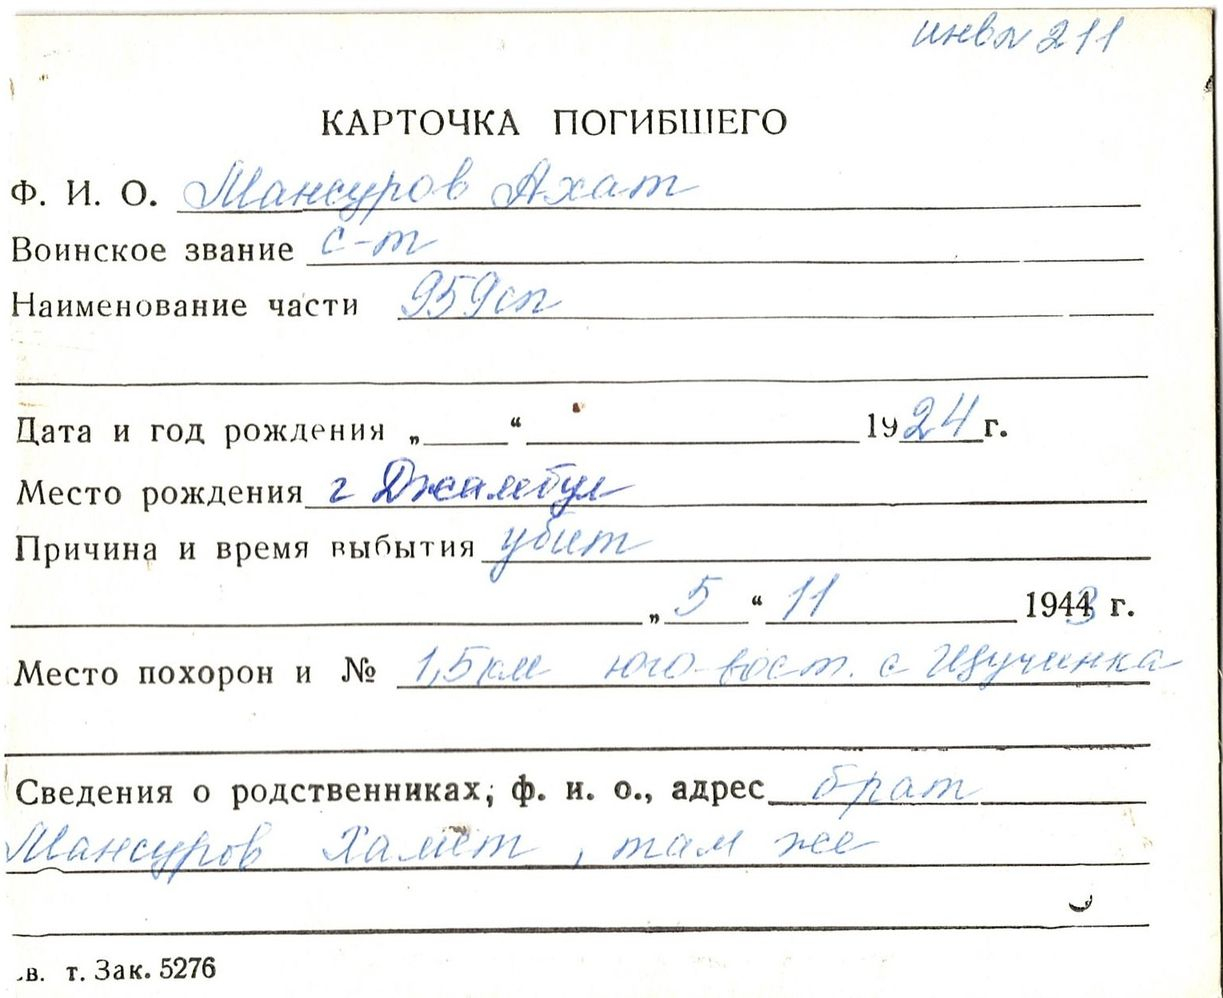 инв№ 211
КАРТОЧКА ПОГИБШЕГО
Ф. И. О. Мансуров Ахат
Воинское звание с-т
Наименование части 959сп
Дата и год рождения „ “ 1924 г.
Место рождения г Джамбул
Причина и время выбытия убит
„ 5 “ 11 1943 г.
Место похорон и № 1,5км юго-вост. с Щучинка
Сведения о родственниках, ф. и. о., адрес брат
Мансуров Хамет, там же
.в. т. Зак. 5276